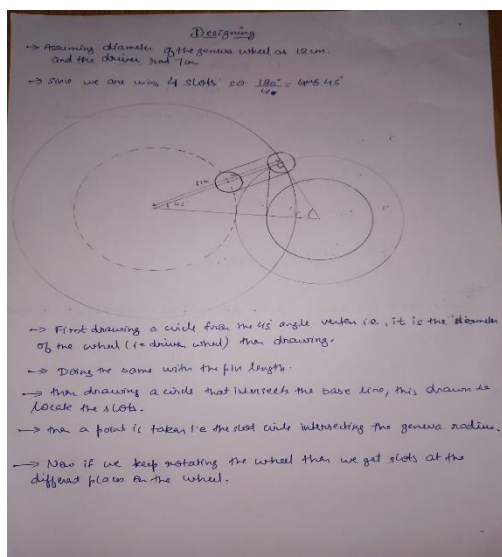 Designing
→ Assuming diameter of the geneva wheel as 12 cm
and the driver rod 7cm
→ Since we are using 4 slots so 180°/4 = 45°
6cm
45
→ First drawing a circle from the 45° angle vertex i.e., it is the diameter
of the wheel (i.e driver wheel) then drawing.
→ Doing the same with the pin length.
→ then drawing a circle that intersects the base line, this drawn to
locate the slots.
→ then a point is taken i.e the slot circle intersecting the geneva radius.
→ Now if we keep rotating the wheel then we get slots at the
different places on the wheel.